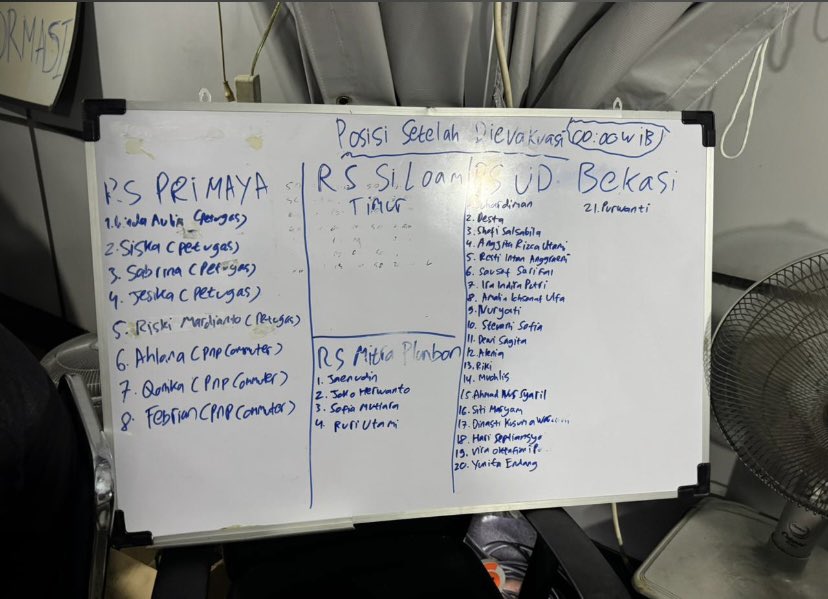 ORMASI
Posisi Setelah Dievakuasi (00:00 WIB)
RS PRIMAYA
Aulia (Petugas)
2. Siska (Petugas)
3. Sabrina (Petugas)
4. Jesika (Petugas)
5. Riski Mardianto (Petugas)
6. Ahlana (PNP Commuter)
7. Qonika (PNP Commuter)
8. Febrian (PNP Commuter)
RS SiLoam
Timur
RS Mitra Plumbon
1. Jaenudin
2. Joko Herwanto
3. Sofia Mutiara
4. Ruri Utami
RSUD Bekasi
2. Desta
3. Shofi Salsabila
4. Anggita Rizca Utami
5. Resti Intan Anggraeni
6. Sausaf
7. Ira Indita Putri
8. Amalia Ulfa
9. Nuryati
10. Stevani Sofia
11. Dewi Sagita
12. Alenia
13. Riki
14. Muchlis
15. Ahmad Nur Syaril
16. Siti Maryam
17. Dinasti Kusuma
18. Hari Septiansyo
19. Vira
20. Yunita Endang
21. Purwanti